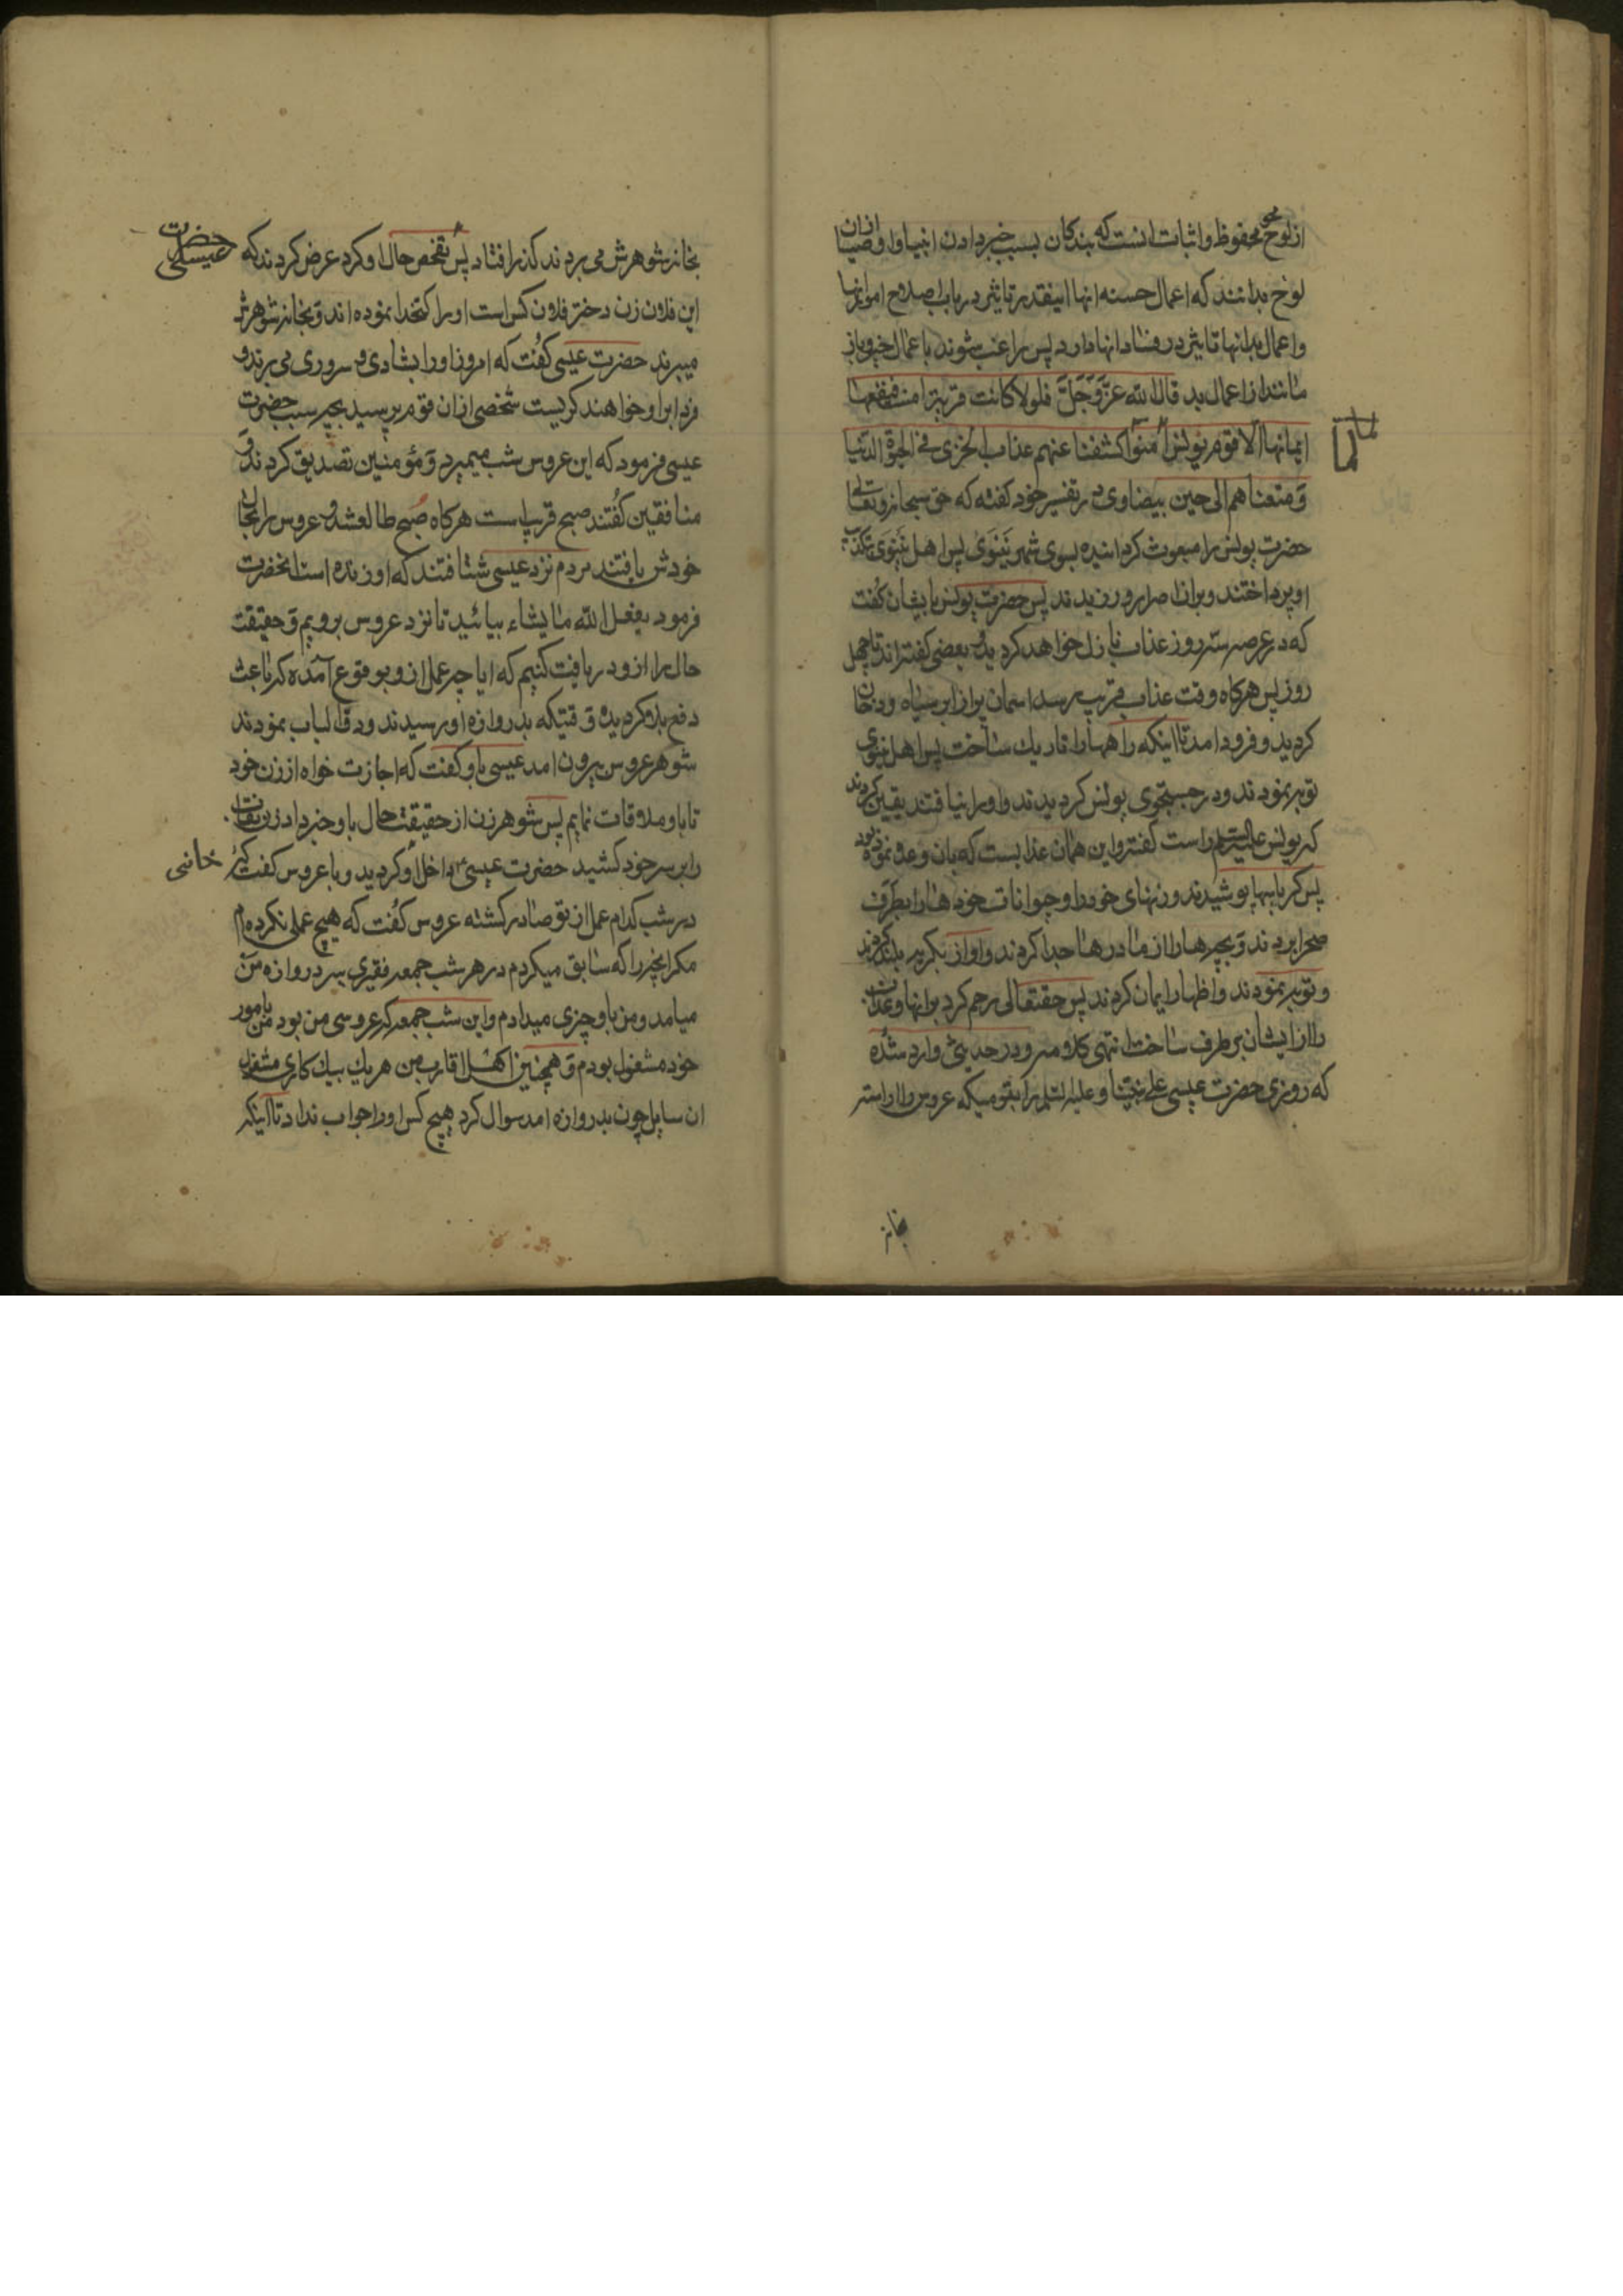 از لوح محو محفوظ و اثبات انست که بندکان بسبب خبر دادن انبیا و اوصیا ازان
لوح بدانند که اعمال حسنه انها اینقدر تاثیر در باب اصلاح امور انها
و اعمال بد انها تاثیر در فساد انها دارد پس راغب شوند باعمال خیر و باز
مانند از اعمال بد قال الله عز و جل فلولا کانت قریة امنت فنفعها
ایمانها الا قوم یونس لما امنوا کشفنا عنهم عذاب الخزی فی الحیوة الدنیا
و متعناهم الی حین بیضاوی در تفسیر خود کفته که حق سبحانه و تعالی
حضرت یونس را مبعوث کردانیده بسوی شهر نینوی پس اهل نینوی بتکذیب
او پرداختند و بران اصرار ورزیدند پس حضرت یونس بایشان کفت
که در عرصه سه روز عذاب نازل خواهد کردید و بعضی کفته اند تا چهل
روز پس هرکاه وقت عذاب قریب رسد اسمان پر از ابر سیاه و دخان
کردید و فرود امد تا اینکه راهها را تاریک ساخت پس اهل نینوی
توبه نمودند و در جستجوی یونس کردیدند و او را نیافتند یقین کردند
که یونس علیه السلام راست کفته و این همان عذابست که بان وعده نموده بود
پس کرباسها پوشیدند و زنهای خود را و حیوانات خودها را بطرف
صحرا بردند و بچه ها را از مادرها جدا کردند و اواز بکریه بلند کردند
و توبه نمودند و اظهار ایمان کردند پس حقتعالی رحم کرد برانها و عذاب
را از ایشان برطرف ساخت انتهی کلامه و در حدیثی وارد شده
که روزی حضرت عیسی علی نبینا و علیه السلم را بقومیکه عروس را اراسته
بخانه
بخانه شوهرش می بردند کذر افتاد پس تفحص حال او کرد عرض کردند که حضرت عیسی
این فلان زن دختر فلان کس است او را کتخدا نموده اند و بخانه شوهرش
میبرند حضرت عیسی کفت که امروز او را بشادی و سروری می برند و
فردا برا و خواهند کریست شخصی ازان قوم پرسید بچه سبب حضرت
عیسی فرمود که این عروس شب میمیرد و مؤمنین تصدیق کردند و
منافقین کفتند صبح قریب است هرکاه صبح طالع شد و عروس را بحال
خودش یافتند مردم نزد عیسی شتافتند که او زنده است انحضرت
فرمود یفعل الله ما یشاء بیائید تا نزد عروس برویم و حقیقت
حال را از و دریافت کنیم که ایا چه عمل از و بوقوع آمده که باعث
دفع بلا کردیده وقتیکه بدروازه او رسیدند و دق الباب نمودند
شوهر عروس بیرون امد عیسی باو کفت که اجازت خواه از زن خود
تا باو ملاقات نمایم پس شوهر زن از حقیقت حال باو خبر داد زن نقاب
را بر سر خود کشید حضرت عیسی داخل او کردید و با عروس کفت که
در شب کدام عمل از تو صادر کشته عروس کفت که هیچ عملی نکرده ام
مکر انچه را که سابق میکردم در هر شب جمعه فقیری بر دروازه من
میامد و من باو چیزی میدادم و این شب جمعه که عروسی من بود من بامور
خود مشغول بودم و همچنین اهل اقارب من هر یک بیک کاری مشغول
ان سایل چون بدروازه امد سوال کرد هیچ کس او را جواب نداد تا اینکه